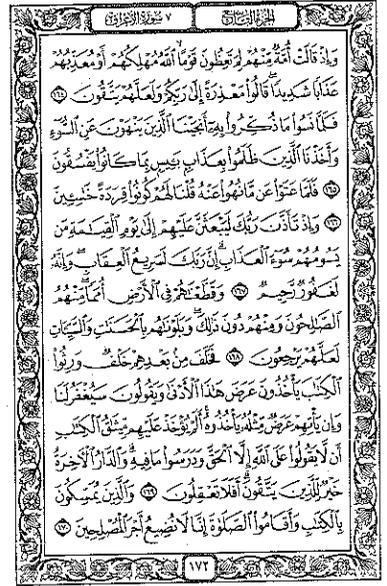 الجزء التاسع
٧ سورة الأعراف
وَإِذْ قَالَتْ أُمَّةٌ مِّنْهُمْ لِمَ تَعِظُونَ قَوْمًا ٱللَّهُ مُهْلِكُهُمْ أَوْ مُعَذِّبُهُمْ
عَذَابًا شَدِيدًا قَالُوا۟ مَعْذِرَةً إِلَىٰ رَبِّكُمْ وَلَعَلَّهُمْ يَتَّقُونَ ١٦٤
فَلَمَّا نَسُوا۟ مَا ذُكِّرُوا۟ بِهِۦٓ أَنجَيْنَا ٱلَّذِينَ يَنْهَوْنَ عَنِ ٱلسُّوٓءِ
وَأَخَذْنَا ٱلَّذِينَ ظَلَمُوا۟ بِعَذَابٍۭ بَـِٔيسٍۭ بِمَا كَانُوا۟ يَفْسُقُونَ
١٦٥ فَلَمَّا عَتَوْا۟ عَن مَّا نُهُوا۟ عَنْهُ قُلْنَا لَهُمْ كُونُوا۟ قِرَدَةً خَٰسِـِٔينَ
١٦٦ وَإِذْ تَأَذَّنَ رَبُّكَ لَيَبْعَثَنَّ عَلَيْهِمْ إِلَىٰ يَوْمِ ٱلْقِيَٰمَةِ مَن
يَسُومُهُمْ سُوٓءَ ٱلْعَذَابِ إِنَّ رَبَّكَ لَسَرِيعُ ٱلْعِقَابِ وَإِنَّهُۥ
لَغَفُورٌ رَّحِيمٌ ١٦٧ وَقَطَّعْنَٰهُمْ فِى ٱلْأَرْضِ أُمَمًا مِّنْهُمُ
ٱلصَّٰلِحُونَ وَمِنْهُمْ دُونَ ذَٰلِكَ وَبَلَوْنَٰهُم بِٱلْحَسَنَٰتِ وَٱلسَّيِّـَٔاتِ
لَعَلَّهُمْ يَرْجِعُونَ ١٦٨ فَخَلَفَ مِنۢ بَعْدِهِمْ خَلْفٌ وَرِثُوا۟
ٱلْكِتَٰبَ يَأْخُذُونَ عَرَضَ هَٰذَا ٱلْأَدْنَىٰ وَيَقُولُونَ سَيُغْفَرُ لَنَا
وَإِن يَأْتِهِمْ عَرَضٌ مِّثْلُهُۥ يَأْخُذُوهُ أَلَمْ يُؤْخَذْ عَلَيْهِم مِّيثَٰقُ ٱلْكِتَٰبِ
أَن لَّا يَقُولُوا۟ عَلَى ٱللَّهِ إِلَّا ٱلْحَقَّ وَدَرَسُوا۟ مَا فِيهِ وَٱلدَّارُ ٱلْءَاخِرَةُ
خَيْرٌ لِّلَّذِينَ يَتَّقُونَ أَفَلَا تَعْقِلُونَ ١٦٩ وَٱلَّذِينَ يُمَسِّكُونَ
بِٱلْكِتَٰبِ وَأَقَامُوا۟ ٱلصَّلَوٰةَ إِنَّا لَا نُضِيعُ أَجْرَ ٱلْمُصْلِحِينَ ١٧٠
١٧٢